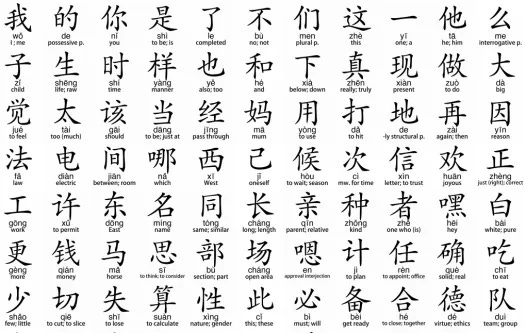 我 的 你 是 了 不 们 这 一 他 么
wǒ de nǐ shì le bù men zhè yī tā me
I ; me possessive p. you to be; is completed no; not plural p. this one; a he; him interrogative p.
子 生 时 样 也 和 下 真 现 做 大
zǐ shēng shí yàng yě hé xià zhēn xiàn zuò dà
child life; raw time manner also; too and below; down really; truly present to do big
觉 太 该 当 经 妈 用 打 地 再 因
jué tài gāi dāng jīng mā yòng dǎ de zài yīn
to feel too (much) should to be; just at pass through mum to use to hit -ly structural p. again; then reason
法 电 间 哪 西 己 候 次 信 欢 正
fǎ diàn jiān nǎ xī jǐ hòu cì xìn huān zhèng
law electric between; room which West oneself to wait; season mw. for time letter; to trust joyous just (right); correct
工 许 东 名 同 长 亲 种 者 嘿 白
gōng xǔ dōng míng tóng cháng qīn zhǒng zhě hēi bái
work to permit East name same; similar long; length parent; relative kind one who (is) hey white; pure
更 钱 马 思 部 场 嗯 计 任 确 吃
gèng qián mǎ sī bù chǎng en jì rèn què chī
more money horse to think; to consider section; part open area approval interjection to plan to appoint; office solid; real to eat
少 切 失 算 性 此 必 备 合 德 队
shǎo qiē shī suàn xìng cǐ bì bèi hé dé duì
few; little to cut; to slice to lose to calculate nature; gender this; these must; will get ready to close; together virtue; ethics team; group